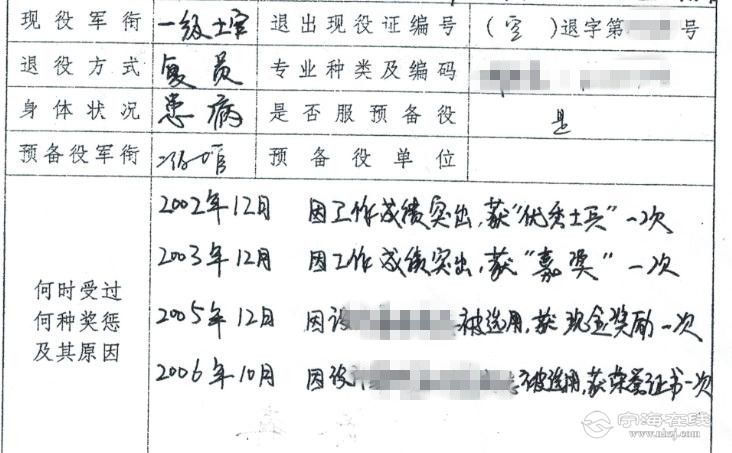 现役军衔 一级士官 退出现役证编号 (空)退字第 号
退役方式 复员 专业种类及编码
身体状况 患病 是否服预备役 是
预备役军衔 预备役单位
何时受过何种奖惩及其原因
2002年12月 因工作成绩突出,获"优秀士兵"一次
2003年12月 因工作成绩突出,获"嘉奖"一次
2005年12月 因设 被选用,获现金奖励一次
2006年10月 因设 被选用,获荣誉证书一次
宁海在线
www.nhzj.com